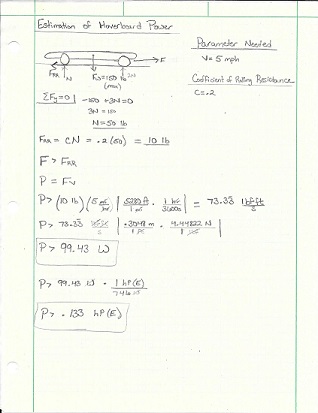 Estimation of Hoverboard Power
Parameter Needed
V = 5 mph
Coefficient of Rolling Resistance
C = .2
F
FRR
N
Fg = 150 lb
(max)
ΣFy = 0
-150 + 3N = 0
3N = 150
N = 50 lb
FRR = CN = .2(50) = 10 lb
F > FRR
P = Fv
P > (10 lb)(5 mi/hr) | 5280 ft / 1 mi · 1 hr / 3600s | = 73.33 lb·ft/s
P > 73.33 lb·ft/s | .3048 m / 1 ft · 4.44822 N / 1 lb |
P > 99.43 W
P > 99.43 W · 1 hP(E) / 746 W
P > .133 hP(E)